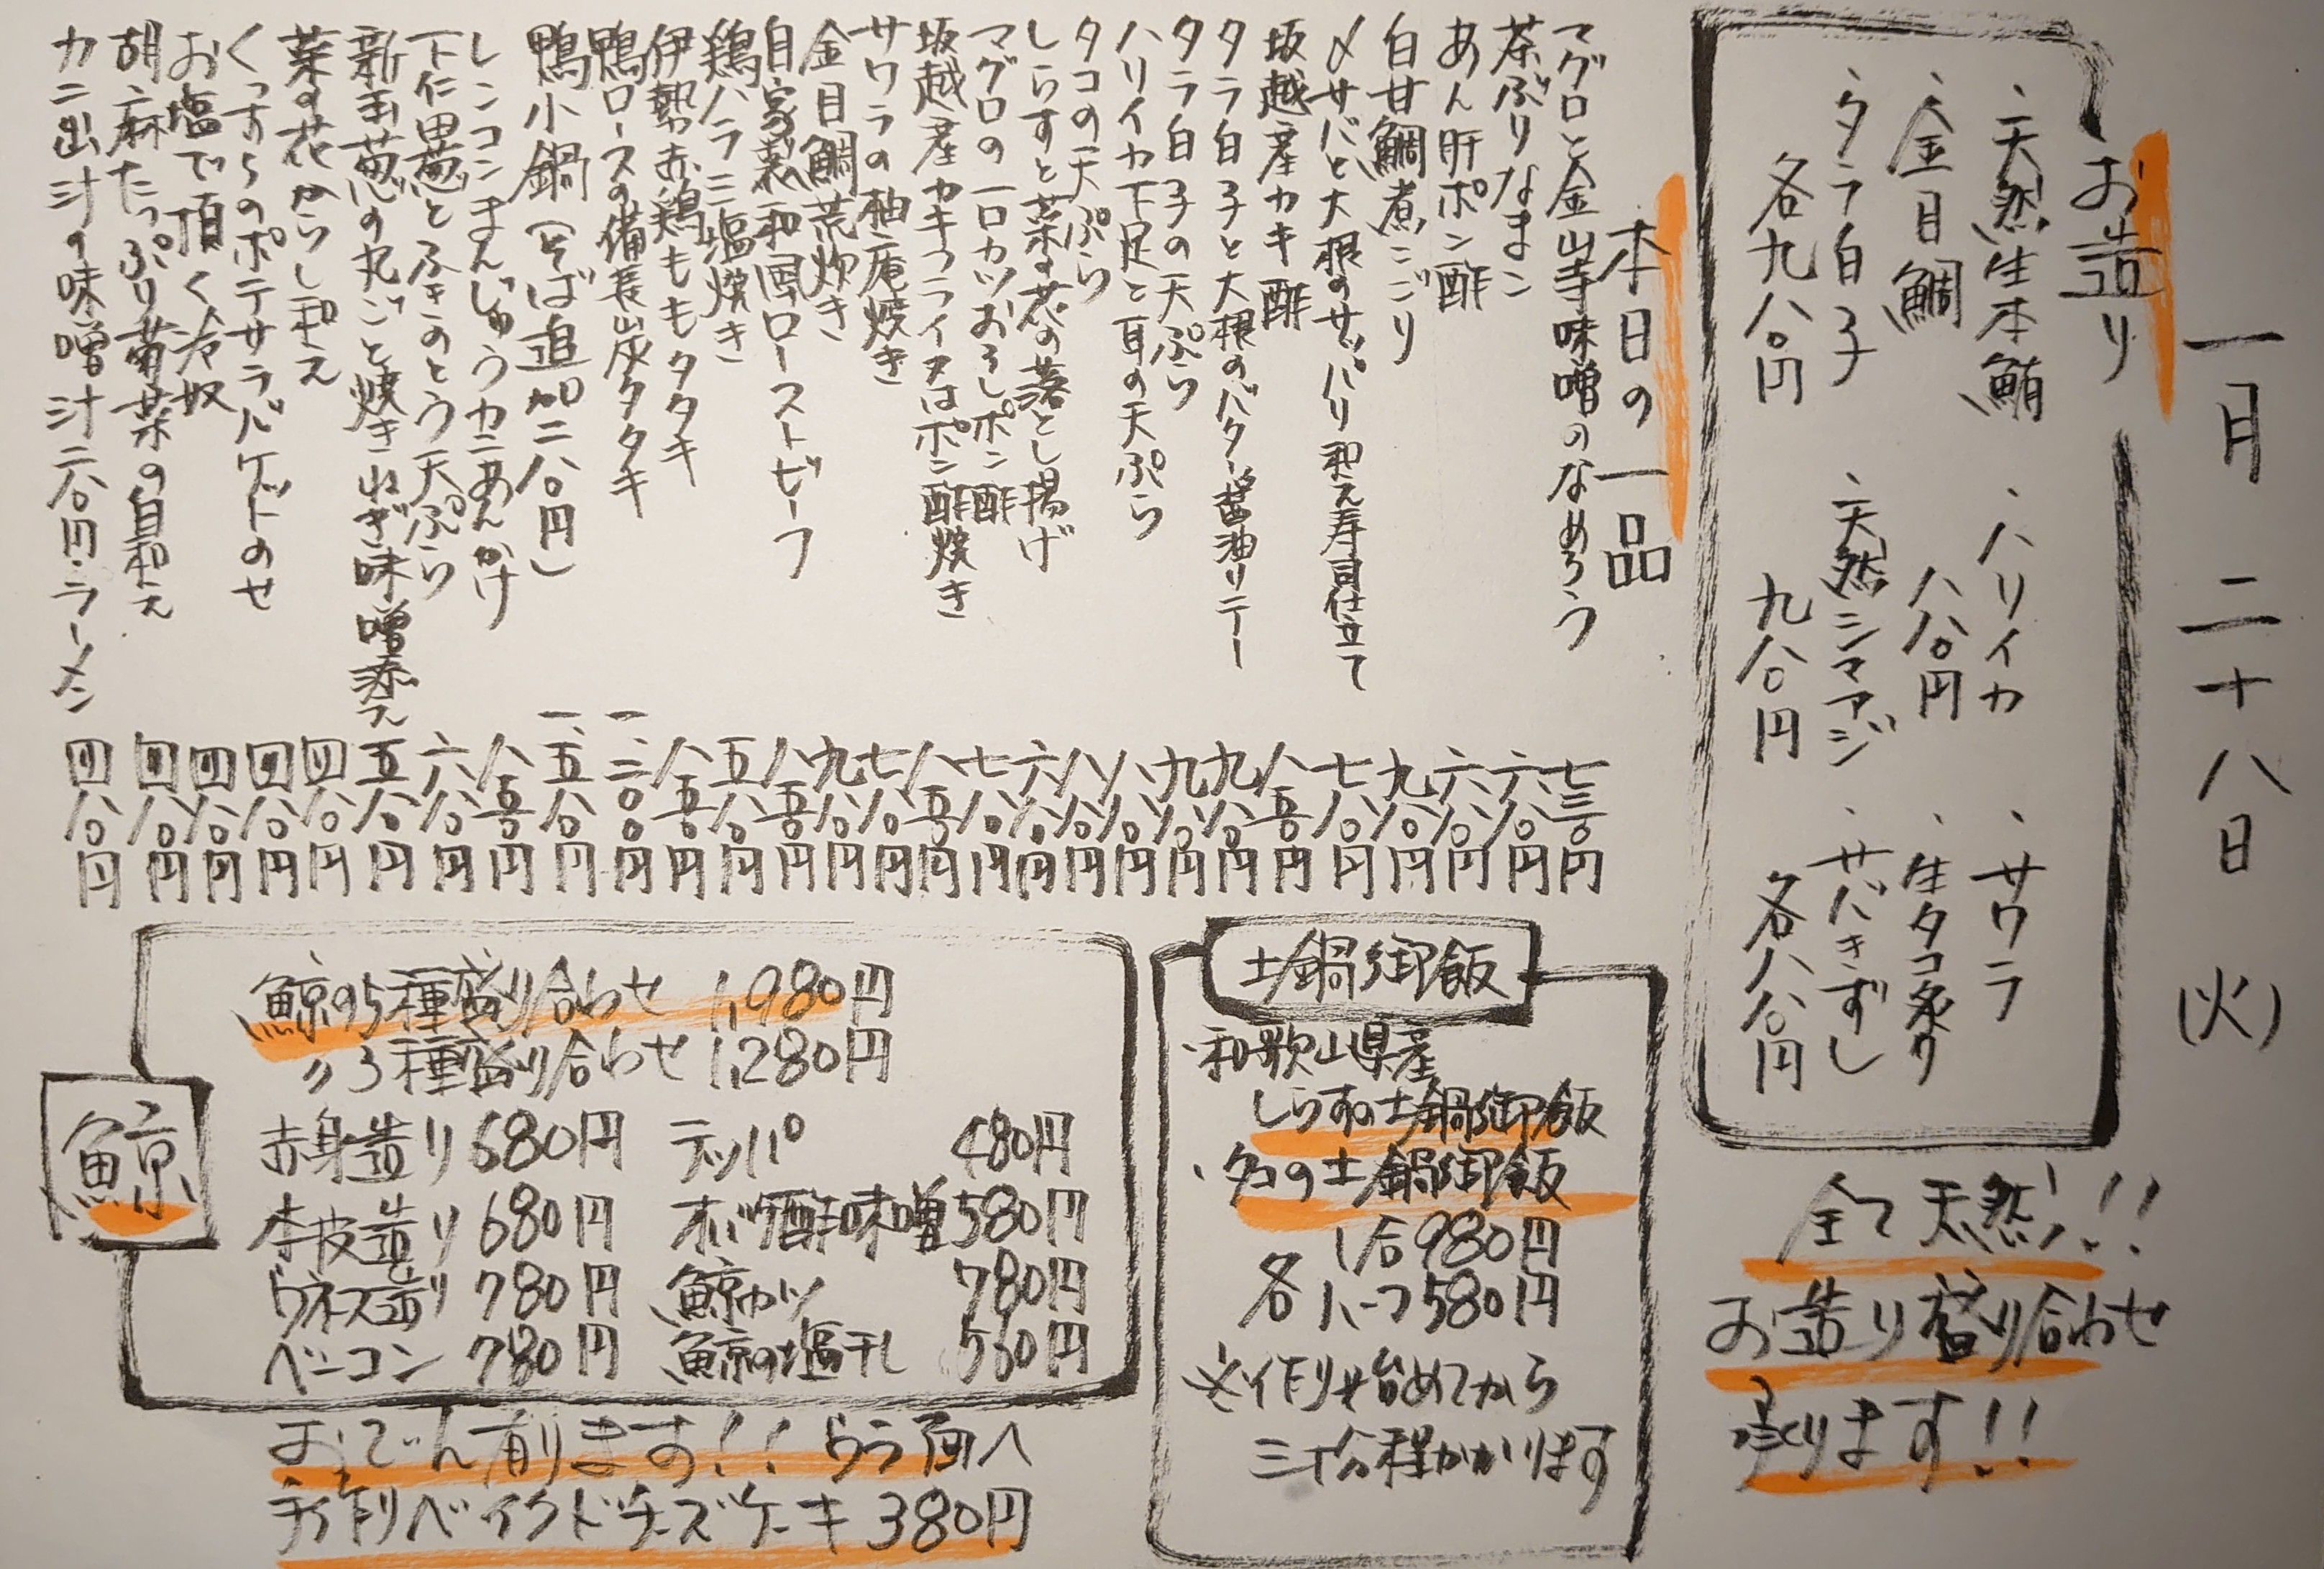 一月二十八日(火)
お造り
・天然生本鮪
・金目鯛
・タラ白子
各九八〇円
・ハリイカ
八八〇円
・天然シマアジ
九八〇円
・サワラ
・生タコ炙り
・サバきずし
各八八〇円
全て天然!!
お造り盛り合わせ
承ります!!
本日の一品
マグロと金山寺味噌のなめろう 七三〇円
茶ぶりなまこ 六八〇円
あん肝ポン酢 六八〇円
白甘鯛煮こごり 九八〇円
〆サバと大根のサッパリ和え寿司仕立て 七八〇円
坂越産カキ酢 八五〇円
タラ白子と大根のバター醤油ソテー 九八〇円
タラ白子の天ぷら 九八〇円
ハリイカ下足と耳の天ぷら 八八〇円
タコの天ぷら 八八〇円
しらすと菜の花の落とし揚げ 六八〇円
マグロの一口カツおろしポン酢 七八〇円
坂越産カキフライ又はポン酢焼き 八五〇円
サワラの柚庵焼き 七八〇円
金目鯛荒炊き 九八〇円
自家製和風ローストビーフ 八五〇円
鶏ハラミ塩焼き 五八〇円
伊勢赤鶏ももタタキ 八五〇円
鴨ロースの備長炭タタキ 一、二〇〇円
鴨小鍋(そば追加二八〇円) 一、五八〇円
レンコンまんじゅうカニあんかけ 八五〇円
下仁田葱とふきのとう天ぷら 六八〇円
新玉葱の丸ごと焼きねぎ味噌添え 五八〇円
菜の花からし和え 四八〇円
くっすらのポテサラバゲットのせ 四八〇円
お塩で頂く冷奴 四八〇円
胡麻たっぷり菊菜の白和え 四八〇円
カニ出汁の味噌汁二八〇円・ラーメン 四八〇円
土鍋御飯
・和歌山県産
しらすの土鍋御飯
・タコの土鍋御飯
1合980円
各ハーフ580円
※作り始めてから
三十分程かかります
鯨
鯨の5種盛り合わせ 1,980円
〃3種盛り合わせ 1,280円
赤身造り 680円 テッパ 480円
本皮造り 680円 オバケ酢味噌 580円
ウネス造り 780円 鯨カツ 780円
ベーコン 780円 鯨の塩干し 560円
おでん有ります!!ウラ面へ
手作りベイクドチーズケーキ 380円